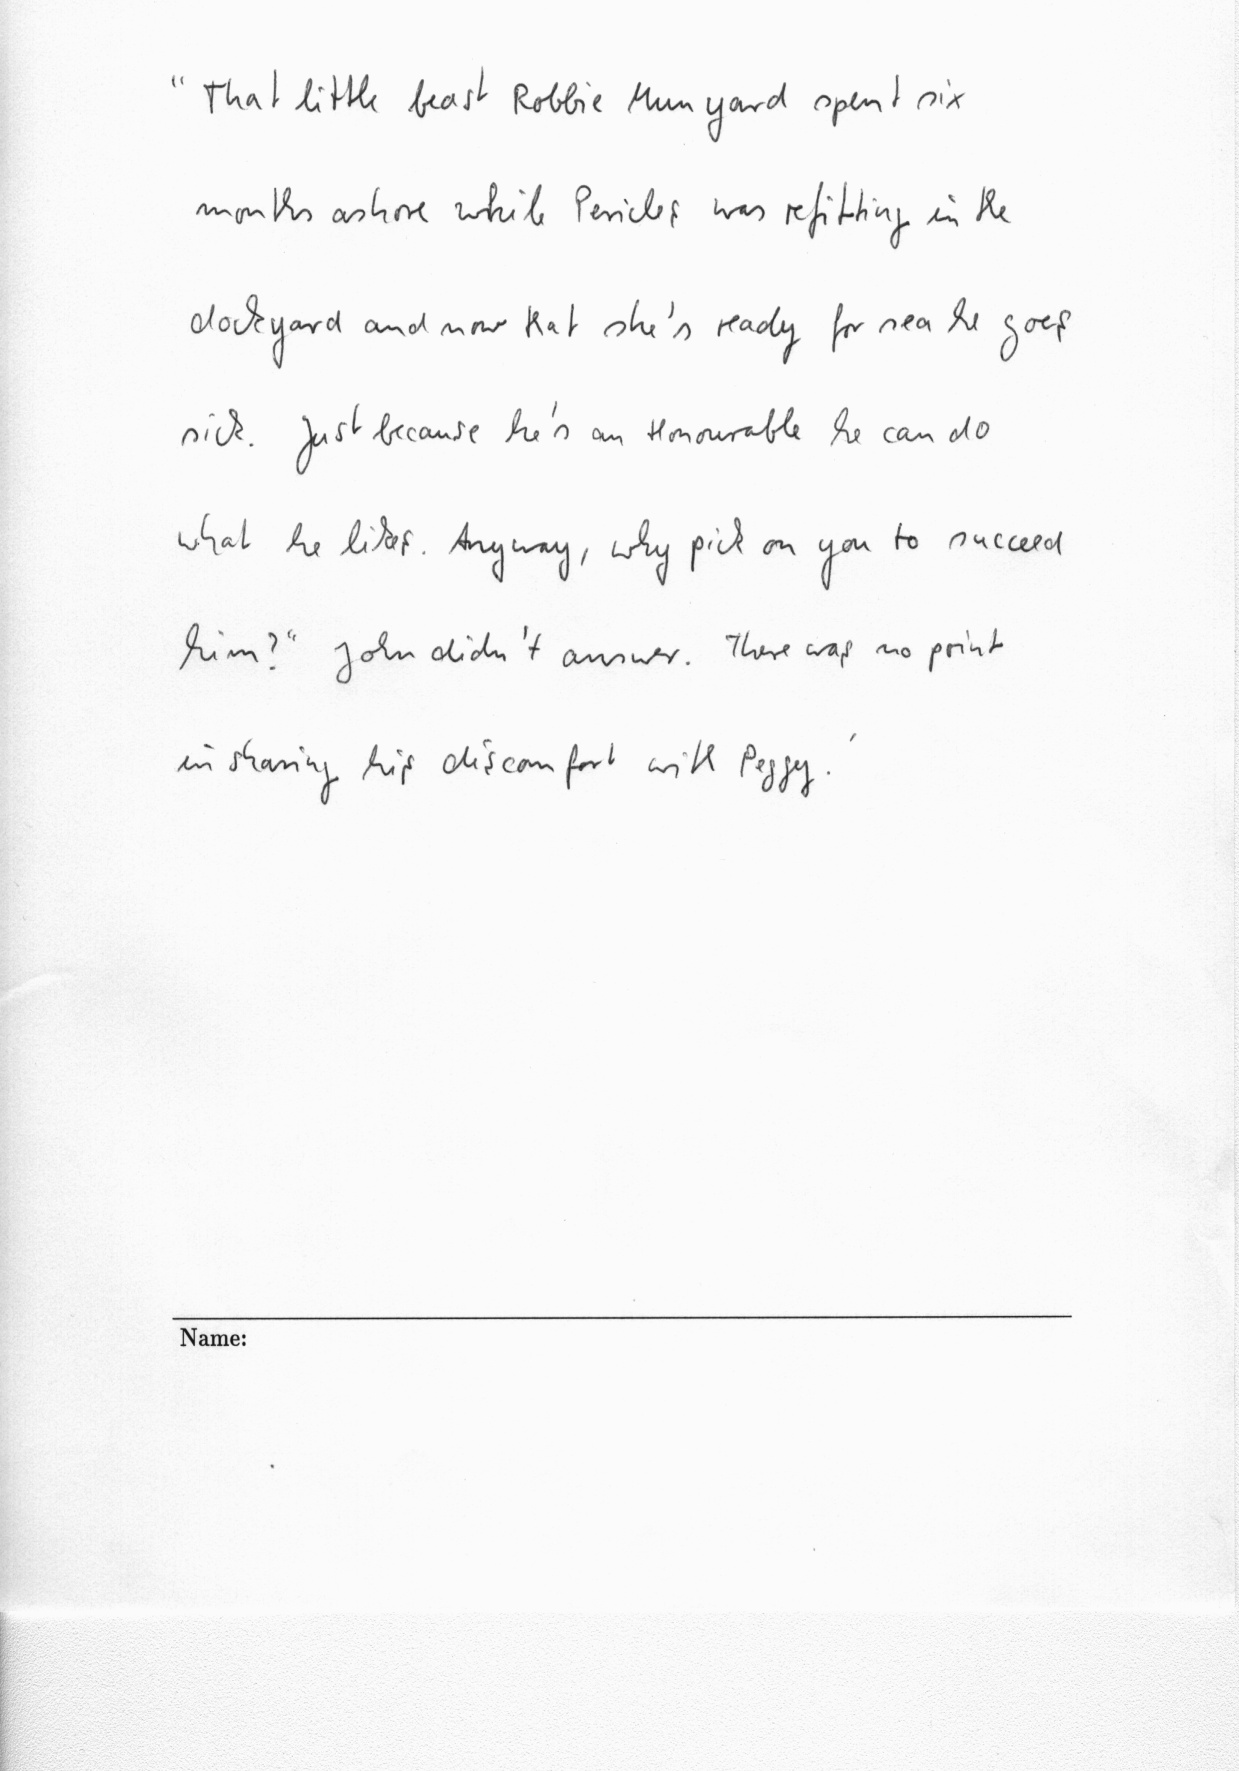 " That little beast Robbie Munyard spent six
months ashore while Pericles was refitting in the
dockyard and now that she's ready for sea he goes
sick. Just because he's an Honourable he can do
what he likes. Anyway, why pick on you to succeed
him?" John didn't answer. There was no point
in sharing his discomfort with Peggy.'
Name: